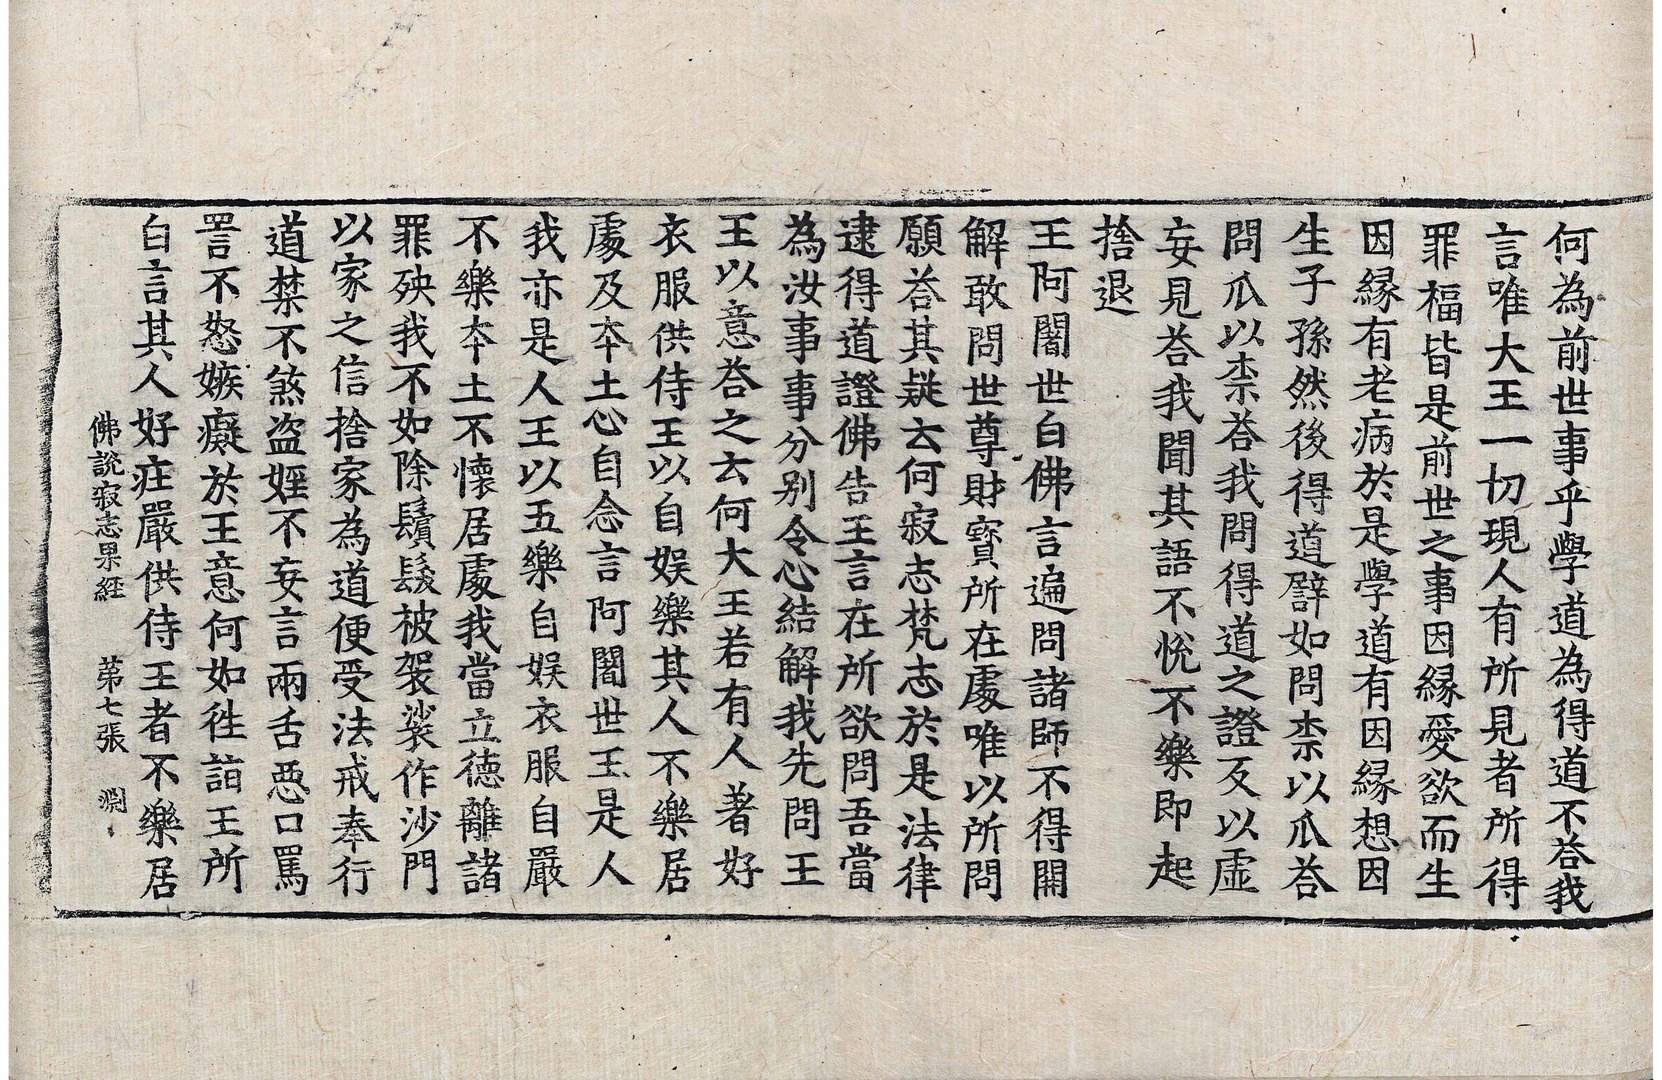 何為前世事乎學道為得道不荅我
言唯大王一切現人有所見者所得
罪福皆是前世之事因緣愛欲而生
因緣有老病於是學道有因緣想因
生子孫然後得道譬如問柰以瓜荅
問瓜以柰荅我問得道之證反以虛
妄見荅我聞其語不悅不樂即起
捨退
王阿闍世白佛言遍問諸師不得開
解敢問世尊財寶所在處唯以所問
願荅其疑云何寂志梵志於是法律
逮得道證佛告王言在所欲問吾當
為汝事事分別令心結解我先問王
王以意荅之云何大王若有人著好
衣服供侍王以自娛樂其人不樂居
處及夲土心自念言阿闍世王是人
我亦是人王以五樂自娛衣服自嚴
不樂夲土不懷居處我當立德離諸
罪殃我不如除鬚髮被袈裟作沙門
以家之信捨家為道便受法戒奉行
道禁不煞盜婬不妄言兩舌惡口罵
詈不怒嫉癡於王意何如徃詣王所
白言其人好庄嚴供侍王者不樂居
佛說寂志果經　第七張　淵